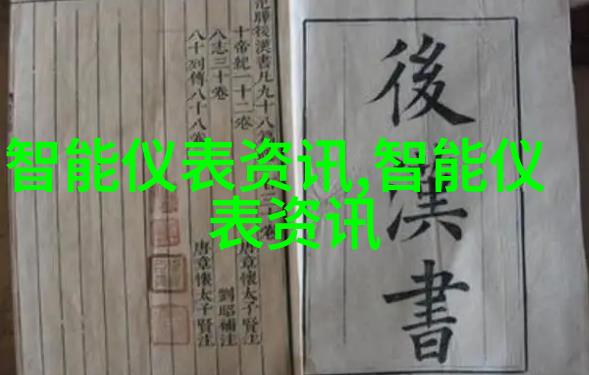 智能仪表资讯,智能仪
表资讯
後漢書
曄後漢書凡九十八
十帝紀一十二卷 唐章懷太子賢注
八志三十卷 劉昭補注
八十列傳八十八卷 唐章懷太子賢注